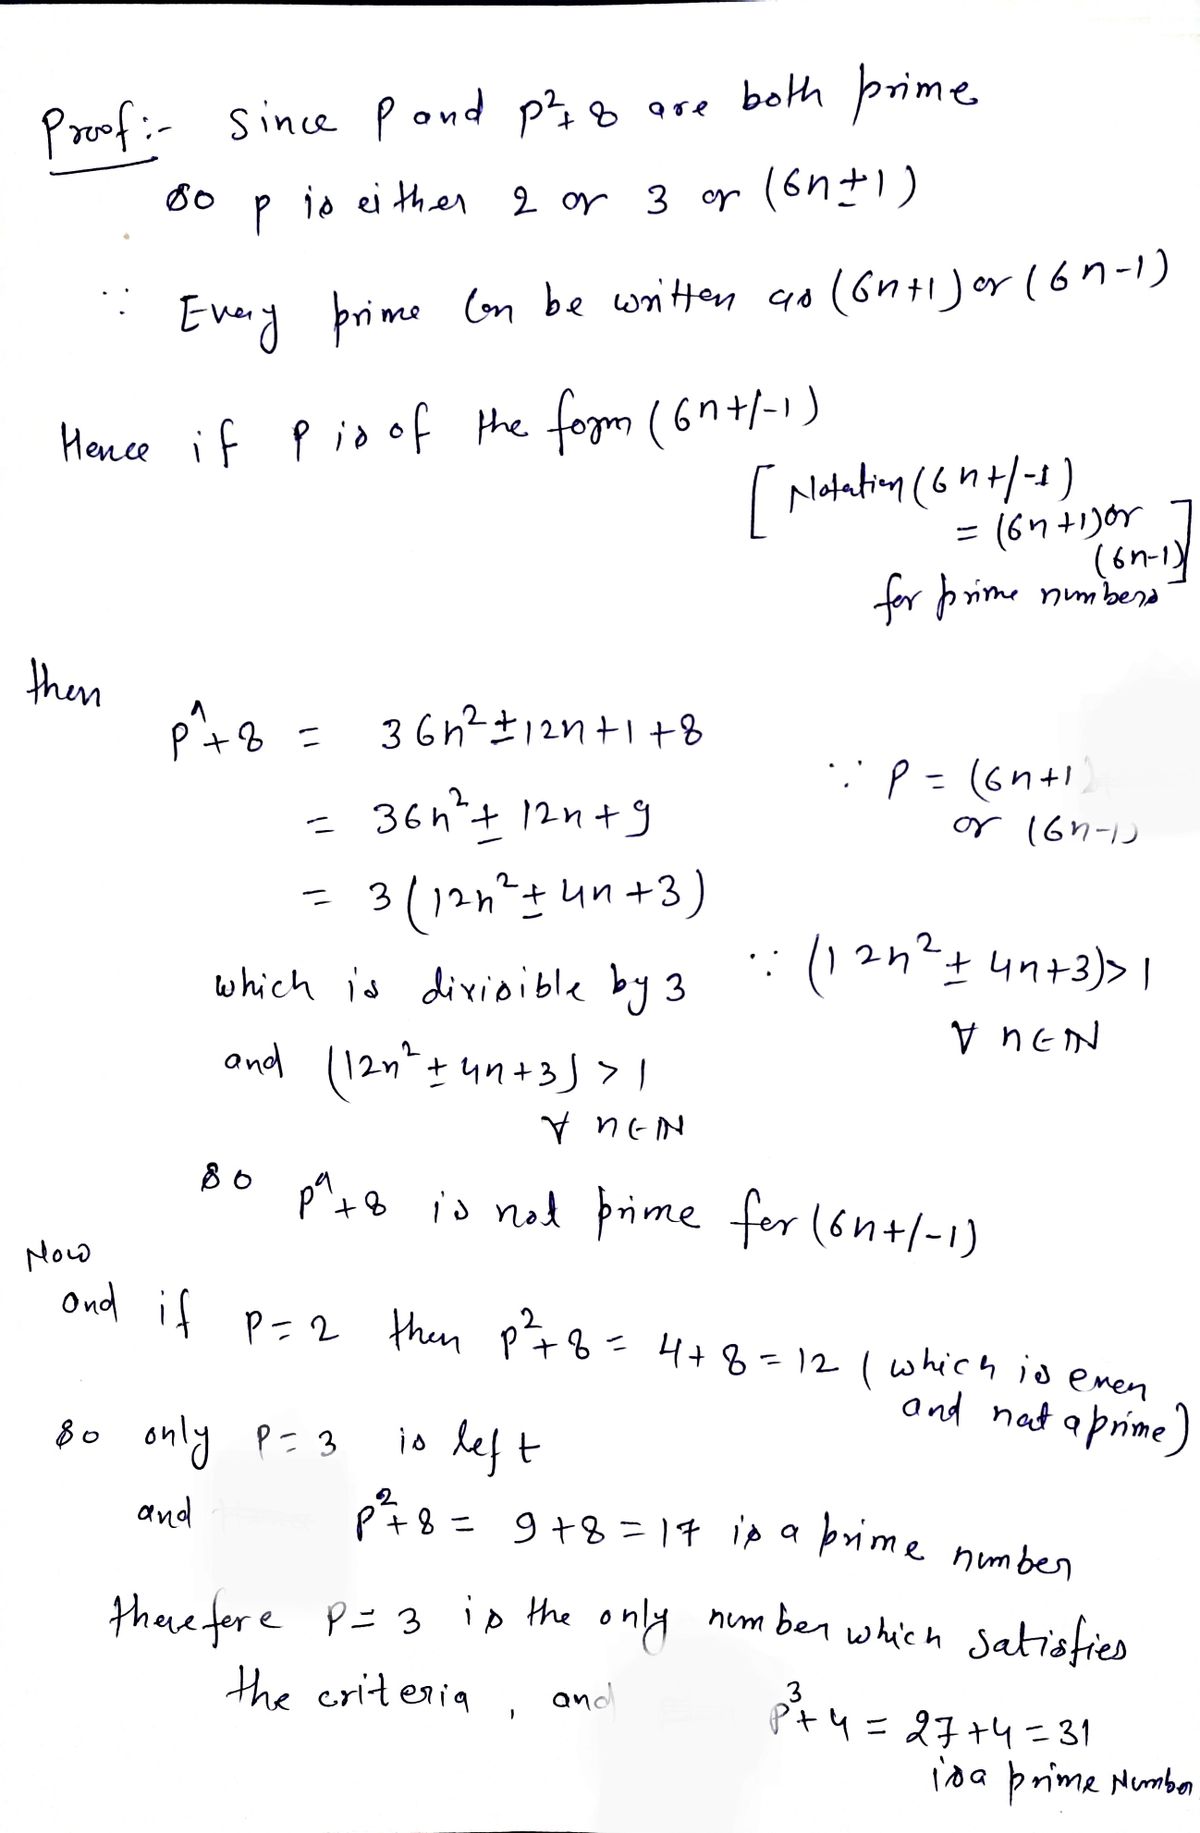 Proof:- Since P and p²+8 are both prime
so p is either 2 or 3 or (6n±1)
∵ Every prime can be written as (6n+1) or (6n-1)
Hence if P is of the form (6n+/-1)
[Notation (6n+/-1)
= (6n+1) or
(6n-1)]
for prime numbers
then
p²+8 = 36n²±12n+1+8
∵ P = (6n+1)
= 36n²±12n+9
or (6n-1)
= 3(12n²±4n+3)
which is divisible by 3
∵ (12n²±4n+3)>1
∀ n∈ℕ
and (12n²±4n+3)>1
∀ n∈ℕ
so p²+8 is not prime for (6n+/-1)
Now
and if p=2 then p²+8 = 4+8=12 (which is even
and not a prime)
so only P=3 is left
and p²+8 = 9+8=17 is a prime number
therefore P=3 is the only number which satisfies
the criteria, and p³+4 = 27+4=31
is a prime Number